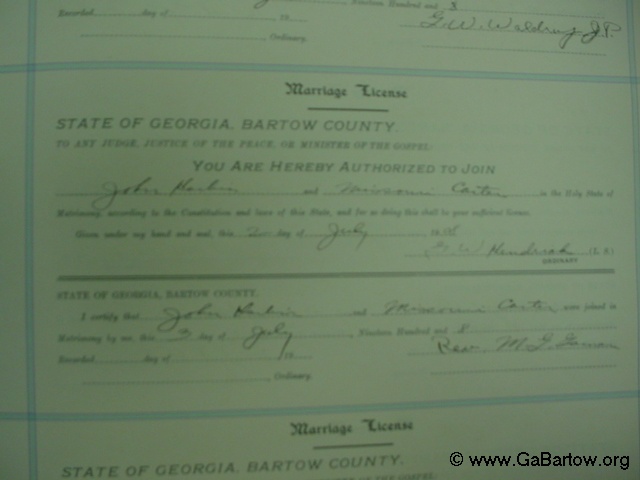 Nineteen Hundred and 8
Recorded day of 19 G. W. Waldrup J.P.
Ordinary.
Marriage License
STATE OF GEORGIA, BARTOW COUNTY.
TO ANY JUDGE, JUSTICE OF THE PEACE, OR MINISTER OF THE GOSPEL:
YOU ARE HEREBY AUTHORIZED TO JOIN
John and Missouri Carter in the Holy State of
Matrimony, according to the Constitution and laws of this State, and for so doing this shall be your sufficient license.
Given under my hand and seal, this 2 day of July 1908
G. W. Hendricks (L. S.)
ORDINARY
STATE OF GEORGIA, BARTOW COUNTY.
I certify that John and Missouri Carter were joined in
Matrimony by me, this 3 day of July, Nineteen Hundred and 8
Recorded day of 19 Rev. M. G.
Ordinary.
Marriage License
STATE OF GEORGIA, BARTOW COUNTY.
© www.GaBartow.org